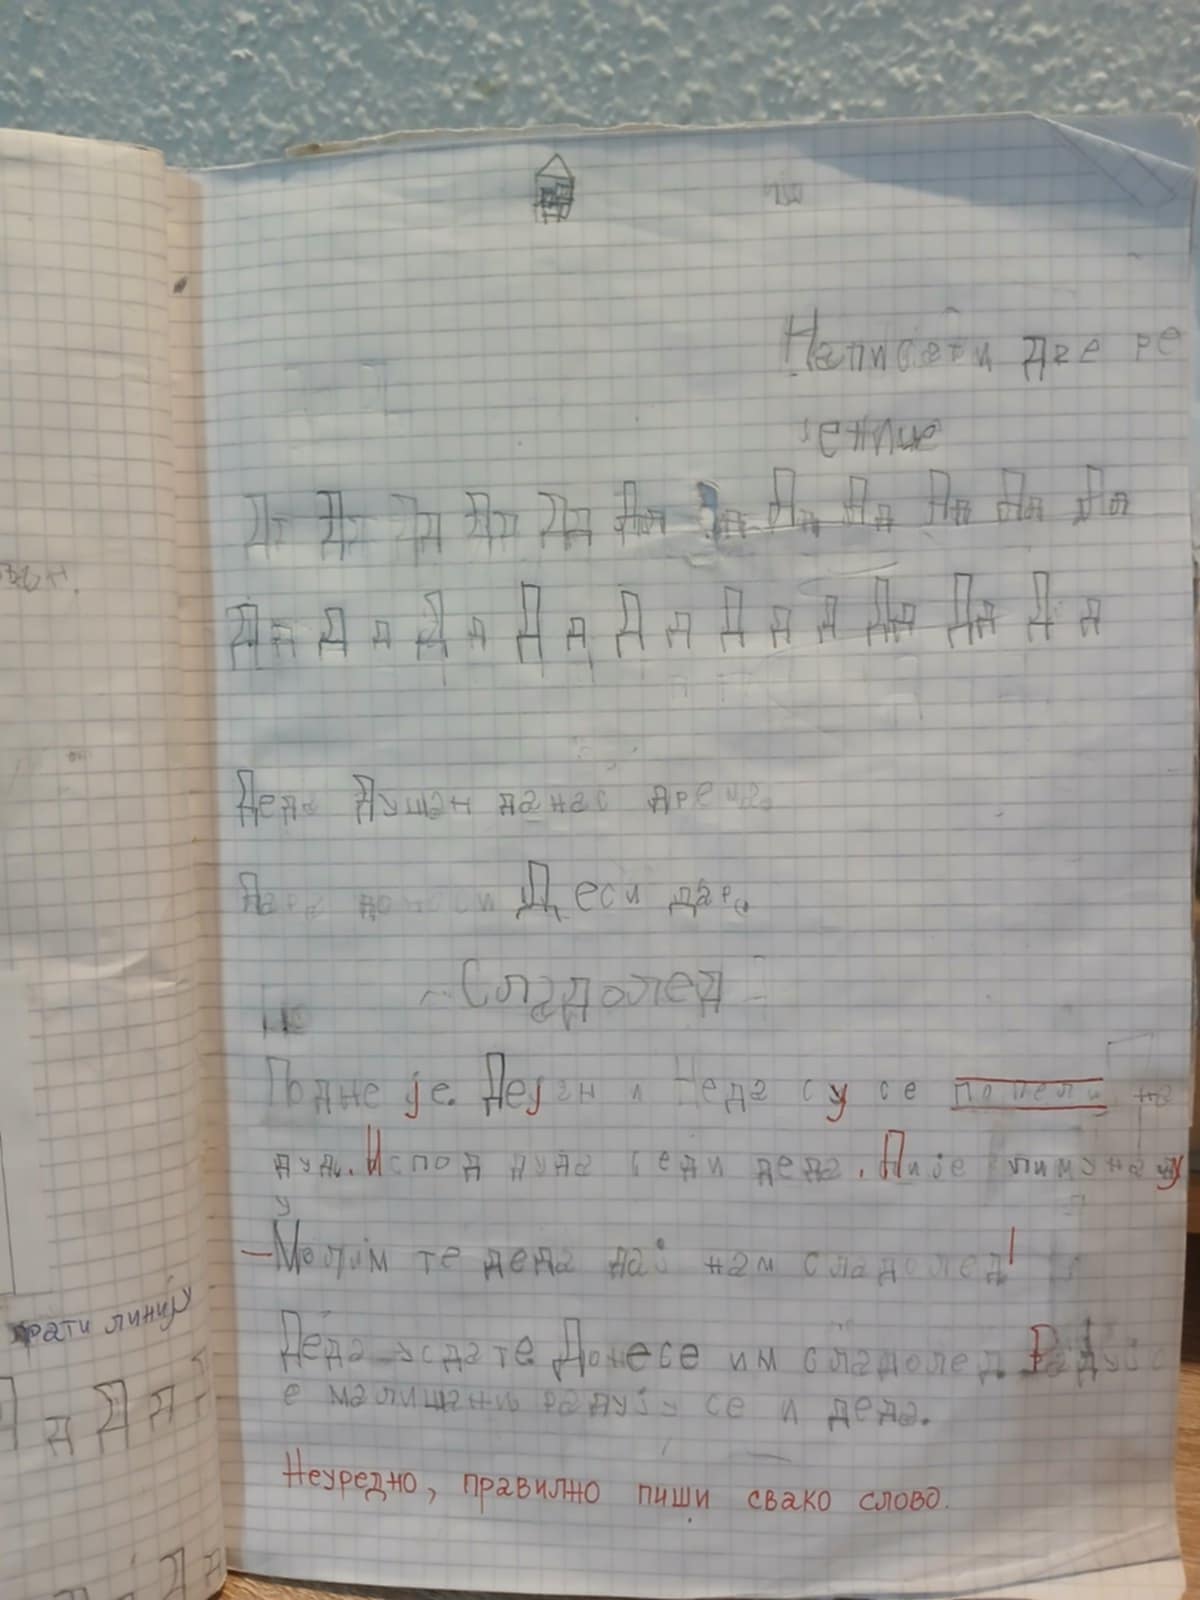 Написати две ре
ченице
Дд Дд Дд Дд Дд Дд Дд Дд Дд Дд Дд Дд
Дд Д д Д д Д д Д д Д д д Дд Дд Д д
Деда Душан данас дрема.
Дара доноси Деси дар.
Сладолед
Подне је. Дејан и Неда су се попели на
дуд. Испод дуда седи деда. Пије лимунаду
у
— Молим те деда дај нам сладолед!
Деда устаде. Донесе им сладолед. Радује с
е малишани радују се и деда.
Неуредно, правилно пиши свако слово.
врати линију
д Д д